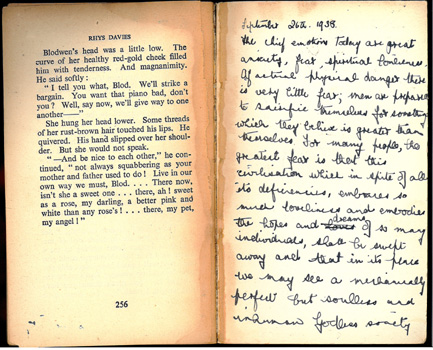 RHYS DAVIES
Blodwen's head was a little low. The
curve of her healthy red-gold cheek filled
him with tenderness. And magnanimity.
He said softly:
"I tell you what, Blod. We'll strike a
bargain. You want that piano bad, don't
you? Well, say now, we'll give way to one
another——"
She hung her head lower. Some threads
of her rust-brown hair touched his lips. He
quivered. His hand slipped over her shoul-
der. But she would not speak.
"—And be nice to each other," he con-
tinued, "not always squabbering as your
mother and father used to do! Live in our
own way we must, Blod. . . . There now,
isn't she a sweet one . . . there, ah! sweet
as a rose, my darling, a better pink and
white than any rose's! . . . there, my pet,
my angel!"
256
September 26th. 1938.
The chief emotions today are great
anxiety, fear, spiritual loneliness.
Of actual physical danger there
is very little fear; men are prepared
to sacrifice themselves for something
which they believe is greater than
themselves. For many people, the
greatest fear is that this
civilisation which in spite of all
its deficiencies, embraces so
much loveliness and embodies
the hopes and dreams of so many
individuals, shall be swept
away and that in its place
we may see a mechanically
perfect but soulless and
inhuman Godless society